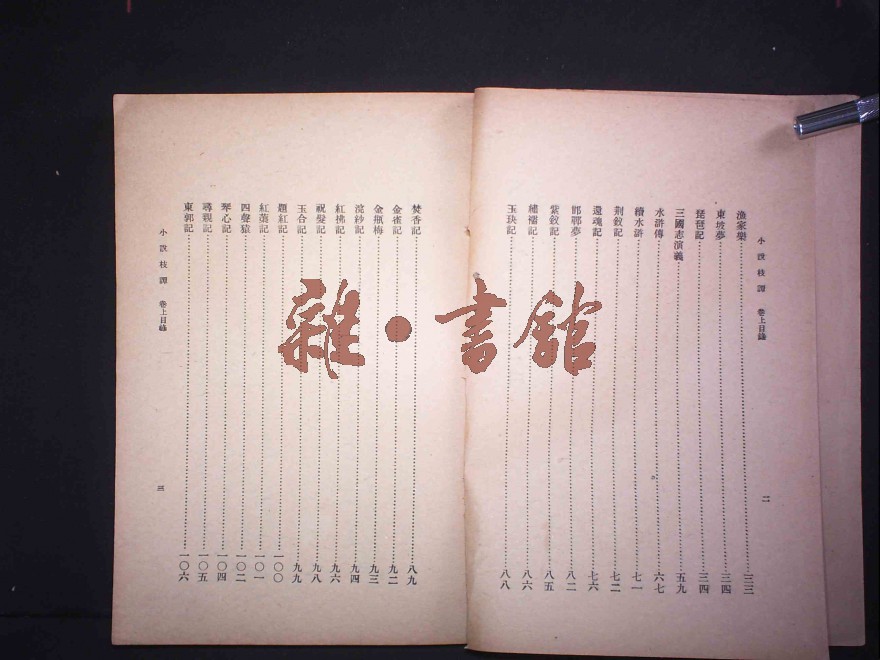 小說枝譚 卷上目錄
二
漁家樂 三三
東坡夢 三四
琵琶記 三四
三國志演義 五九
水滸傳 六七
續水滸 七一
荆釵記 七二
還魂記 七六
邯鄲夢 八二
紫釵記 八五
繡襦記 八六
玉玦記 八八
焚香記 八九
金雀記 九二
金瓶梅 九三
浣紗記 九四
紅拂記 九六
祝髮記 九八
玉合記 九九
題紅記 一〇〇
紅葉記 一〇一
四聲猿 一〇二
琴心記 一〇四
尋親記 一〇五
東郭記 一〇六
小說枝譚 卷上目錄
三
雜·書館